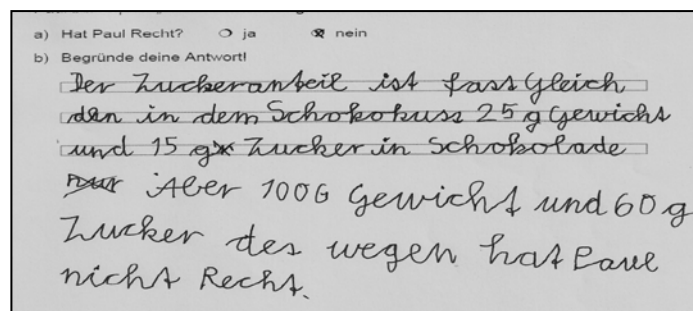 a) Hat Paul Recht? ja nein
b) Begründe deine Antwort!
Der Zuckeranteil ist fast Gleich
den in dem Schokokuss 25 g Gewicht
und 15 g Zucker in Schokolade
Aber 100G Gewicht und 60 g
Zucker des wegen hat Paul
nicht Recht.